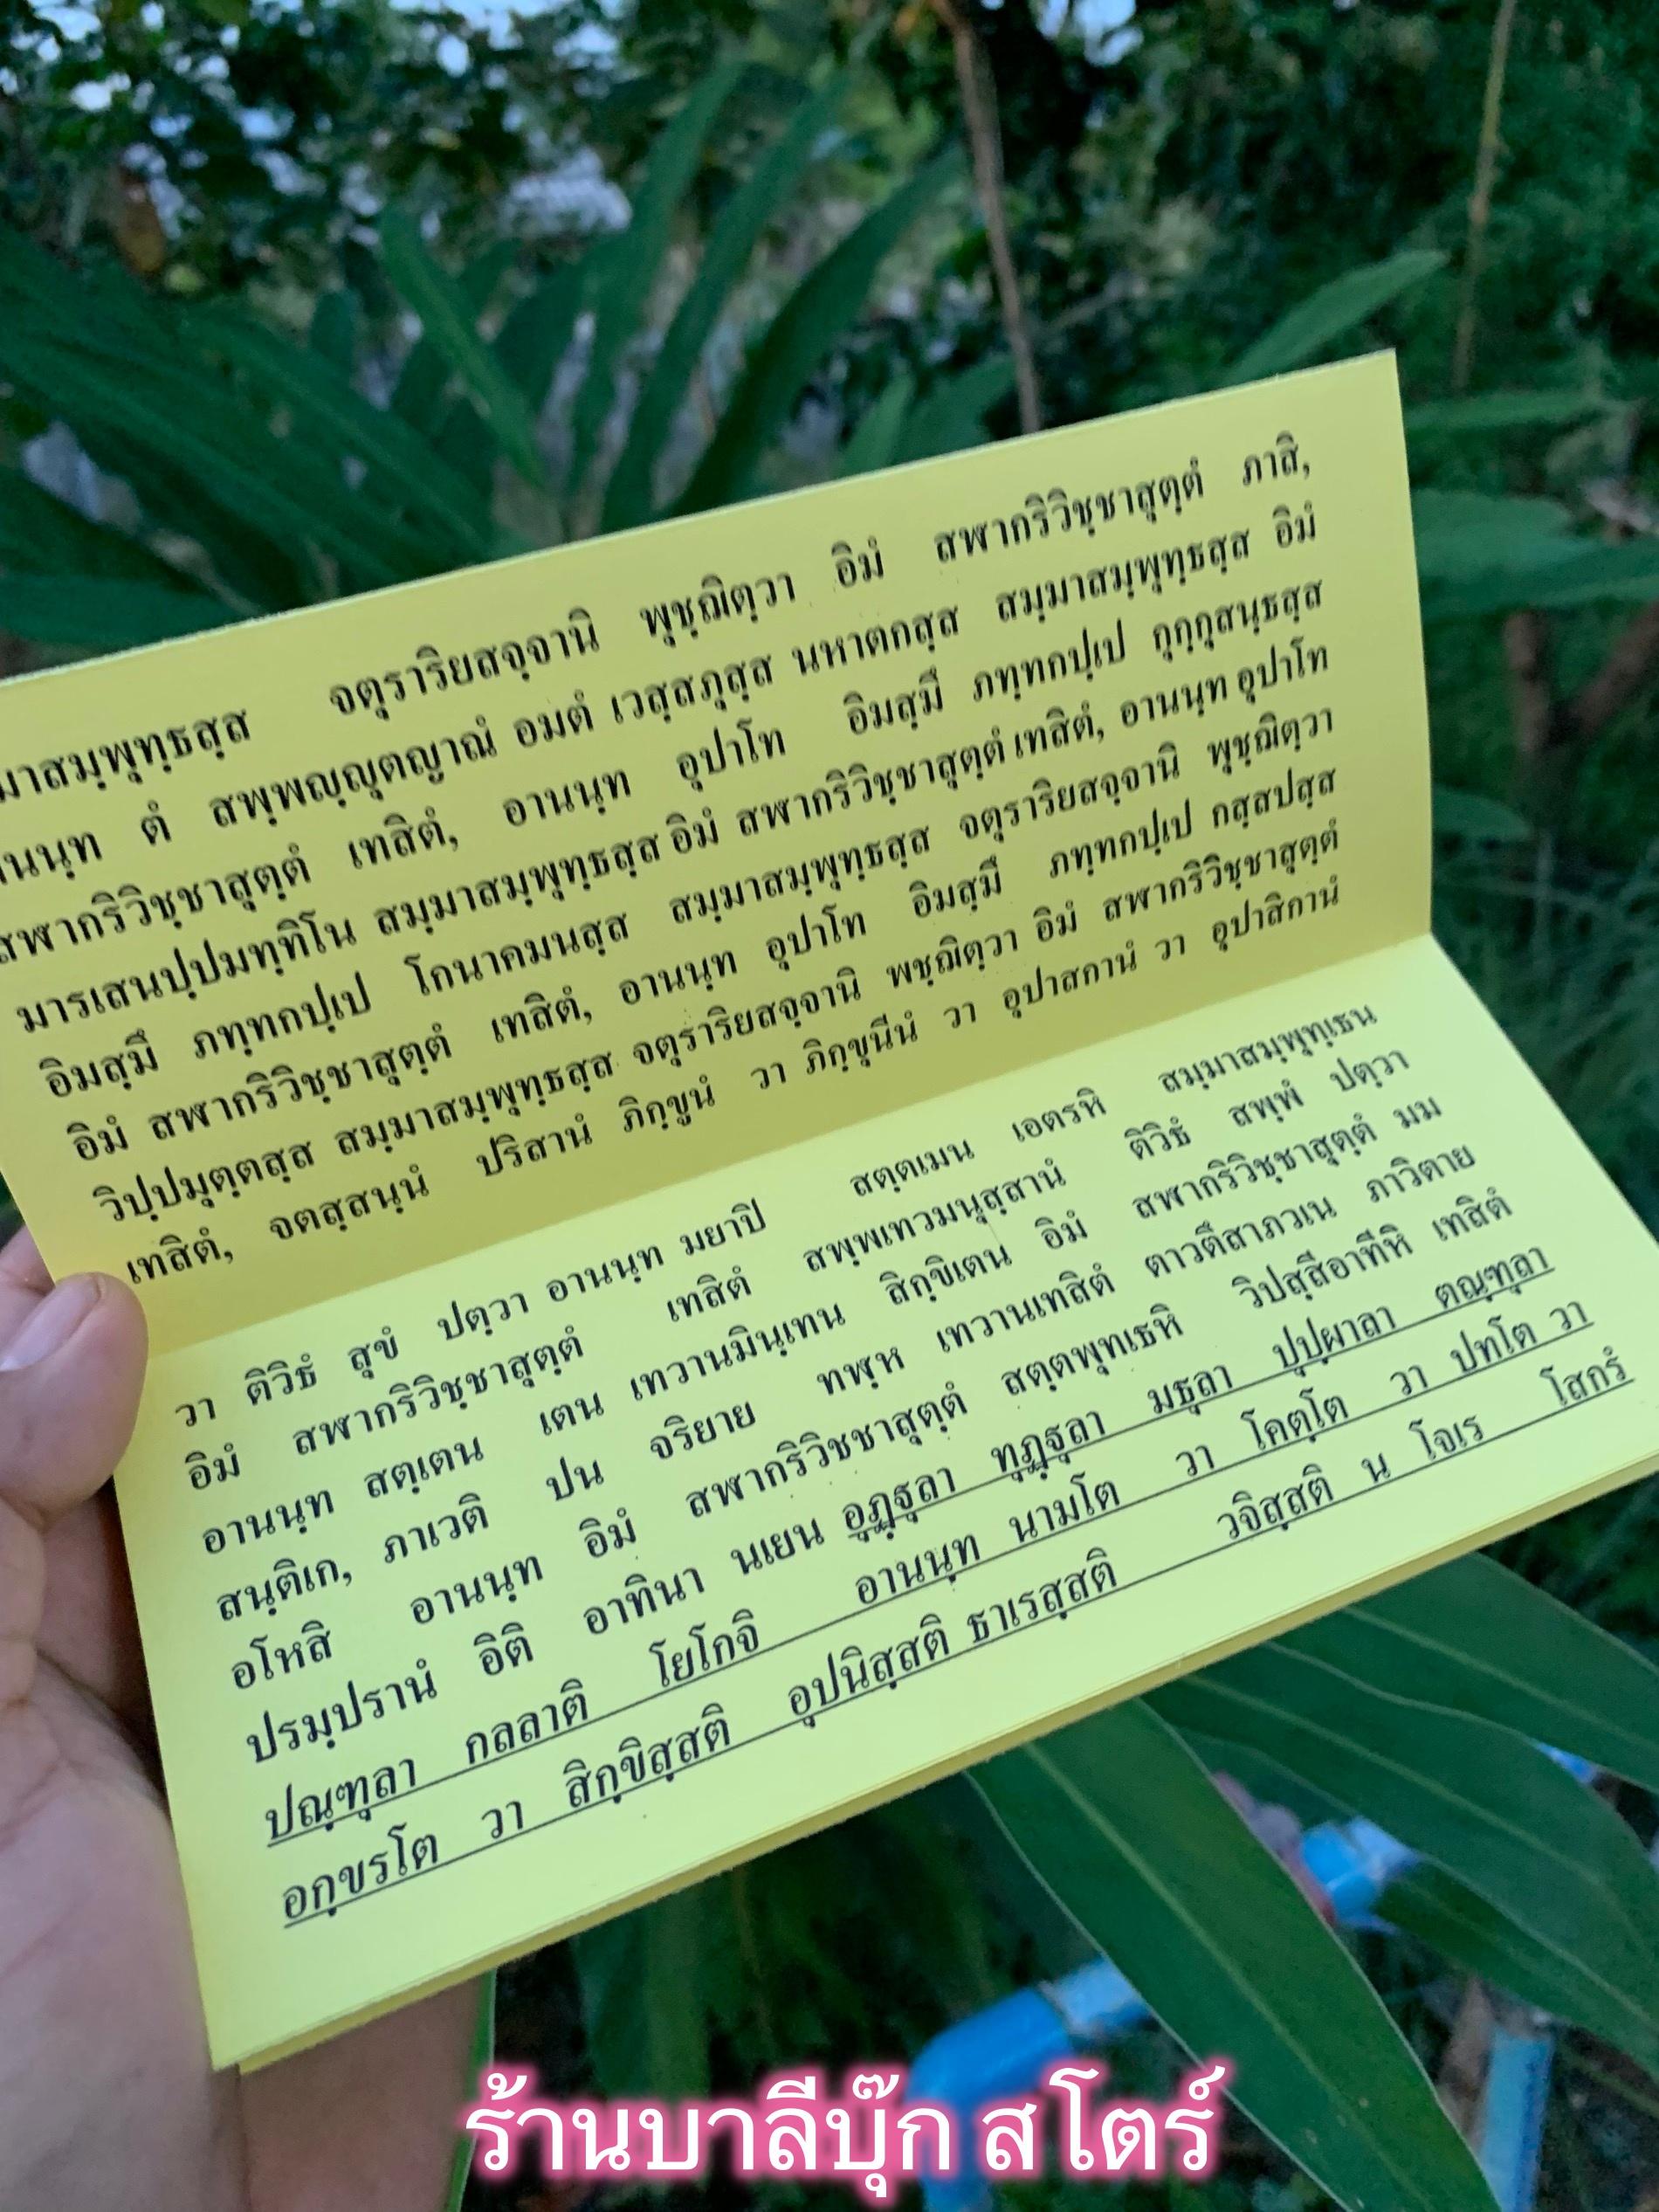 มาสมฺพุทฺธสฺส จตุราริยสจฺจานิ พุชฺฌิตฺวา อิมํ สพฺพากริวิชฺชาสุตฺตํ ภาสิ,
านนฺท ตํ สพฺพญฺญุตญาณํ อมตํ เวสฺสภุสฺส นหาตกสฺส สมฺมาสมฺพุทฺธสฺส อิมํ
สฬากริวิชฺชาสุตฺตํ เทสิตํ, อานนฺท อุปาโท อิมสฺมึ ภทฺทกปฺเป กุกฺกุสนฺธสฺส
มารเสนปฺปมทฺทิโน สมฺมาสมฺพุทฺธสฺส อิมํ สฬากริวิชฺชาสุตฺตํ เทสิตํ, อานนฺท อุปาโท
อิมสฺมึ ภทฺทกปฺเป โกนาคมนสฺส สมฺมาสมฺพุทฺธสฺส จตุราริยสจฺจานิ พุชฺฌิตฺวา
อิมํ สฬากริวิชฺชาสุตฺตํ เทสิตํ, อานนฺท อุปาโท อิมสฺมึ ภทฺทกปฺเป กสฺสปสฺส
วิปฺปมุตฺตสฺส สมฺมาสมฺพุทฺธสฺส จตุราริยสจฺจานิ พชฺฌิตฺวา อิมํ สฬากริวิชฺชาสุตฺตํ
เทสิตํ, จตสฺสนฺนํ ปริสานํ ภิกฺขูนํ วา ภิกฺขุนีนํ วา อุปาสกานํ วา อุปาสิกานํ
วา ติวิธํ สุขํ ปตฺวา อานนฺท มยาปิ สตฺตเมน เอตรหิ สมฺมาสมฺพุทฺเธน
อิมํ สฬากริวิชฺชาสุตฺตํ เทสิตํ สพฺพเทวมนุสฺสานํ ติวิธํ สพฺพํ ปตฺวา
อานนฺท สตฺเตน เตน เทวานมินฺเทน สิกฺขิเตน อิมํ สฬากริวิชฺชาสุตฺตํ มม
สนฺติเก, ภาเวติ ปน จริยาย ทฬฺห เทวานเทสิตํ ตาวตึสาภวเน ภาวิตาย
อโหสิ อานนฺท อิมํ สฬากริวิชชาสุตฺตํ สตฺตพุทเธหิ วิปสฺสีอาทีหิ เทสิตํ
ปรมฺปรานํ อิติ อาทินา นเยน อุฏฺฐุลา ทุฏฺฐุลา มธุลา ปุปฺผาลา ตณฺฑุลา
ปณฺฑุลา กลลาติ โยโกจิ อานนฺท นามโต วา โคตฺโต วา ปทโต วา
อกฺขรโต วา สิกฺขิสฺสติ อุปนิสฺสติ ธาเรสฺสติ วจิสฺสติ น โจเร โสกรํ
ร้านบาลีบุ๊ก สโตร์